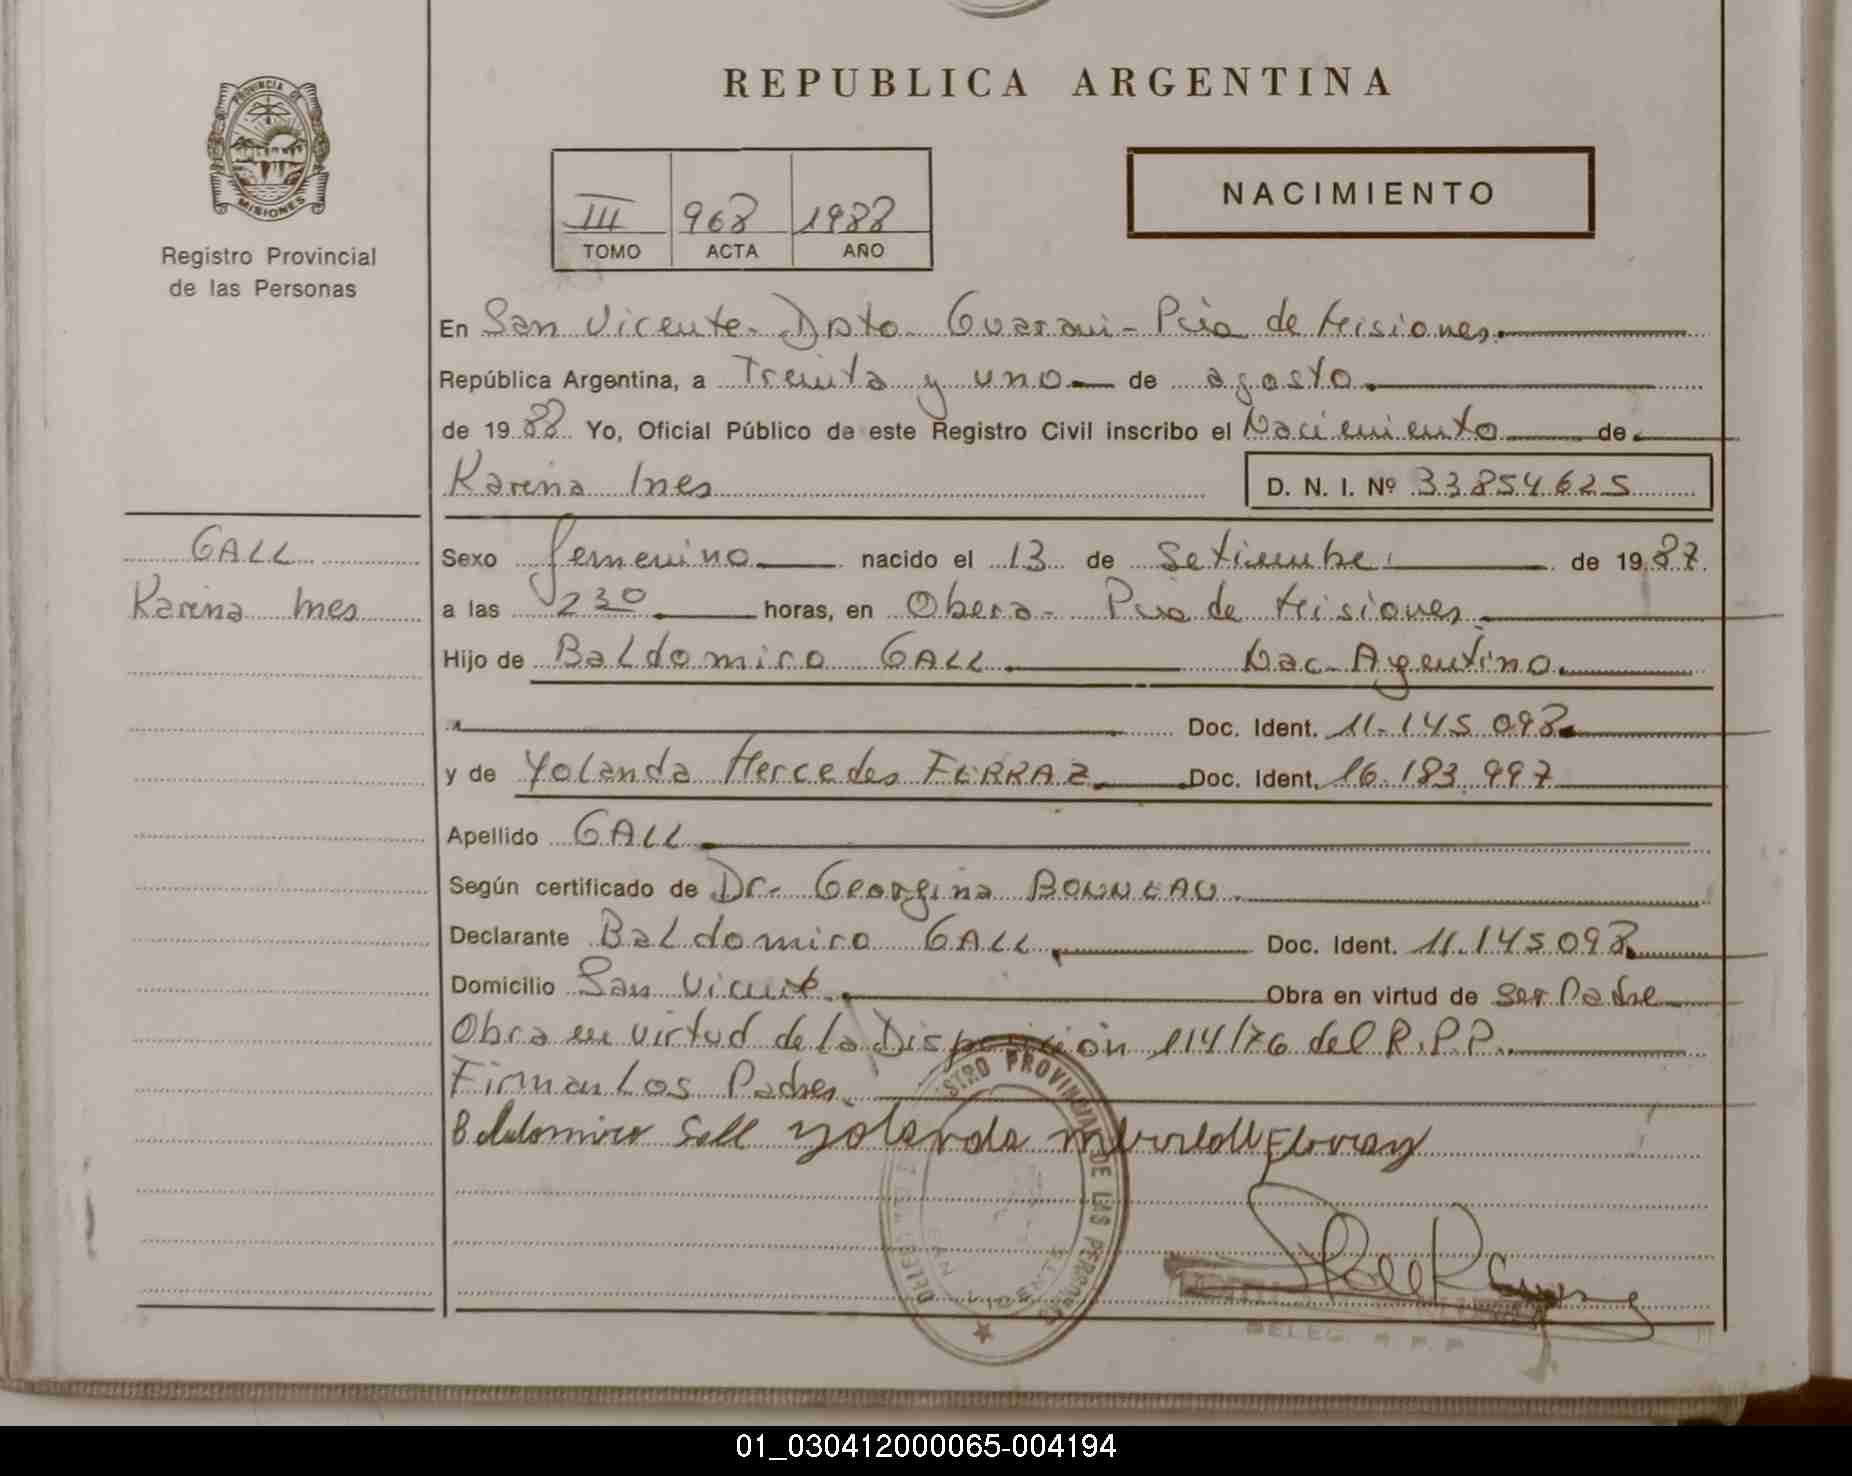 PROVINCIA DE
MISIONES
Registro Provincial
de las Personas
REPUBLICA ARGENTINA
III 968 1988
TOMO ACTA AÑO
NACIMIENTO
En San Vicente - Dpto Guarani - Pcia de Misiones
República Argentina, a Treinta y uno de agosto
de 1988 Yo, Oficial Público de este Registro Civil inscribo el Nacimiento de
Karina Ines D. N. I. Nº 33854625
GALL
Karina Ines
Sexo femenino nacido el 13 de Setiembre de 1987
a las 230 horas, en Obera - Pcia de Misiones
Hijo de Baldomiro GALL Nac. Argentino
Doc. Ident. 11.145.098
y de Yolanda Mercedes FERRAZ Doc. Ident. 16.183.997
Apellido GALL
Según certificado de Dr. Georgina BONNEAU
Declarante Baldomiro GALL Doc. Ident. 11.145098
Domicilio San Vicente Obra en virtud de ser Padre
Obra en virtud de la Disposición 114/76 del R.P.P.
Firman Los Padres
Baldomiro Gall Yolanda
REGISTRO PROVINCIAL DE LAS PERSONAS
SAN VICENTE
DELEG. R. P. P.
01_030412000065-004194